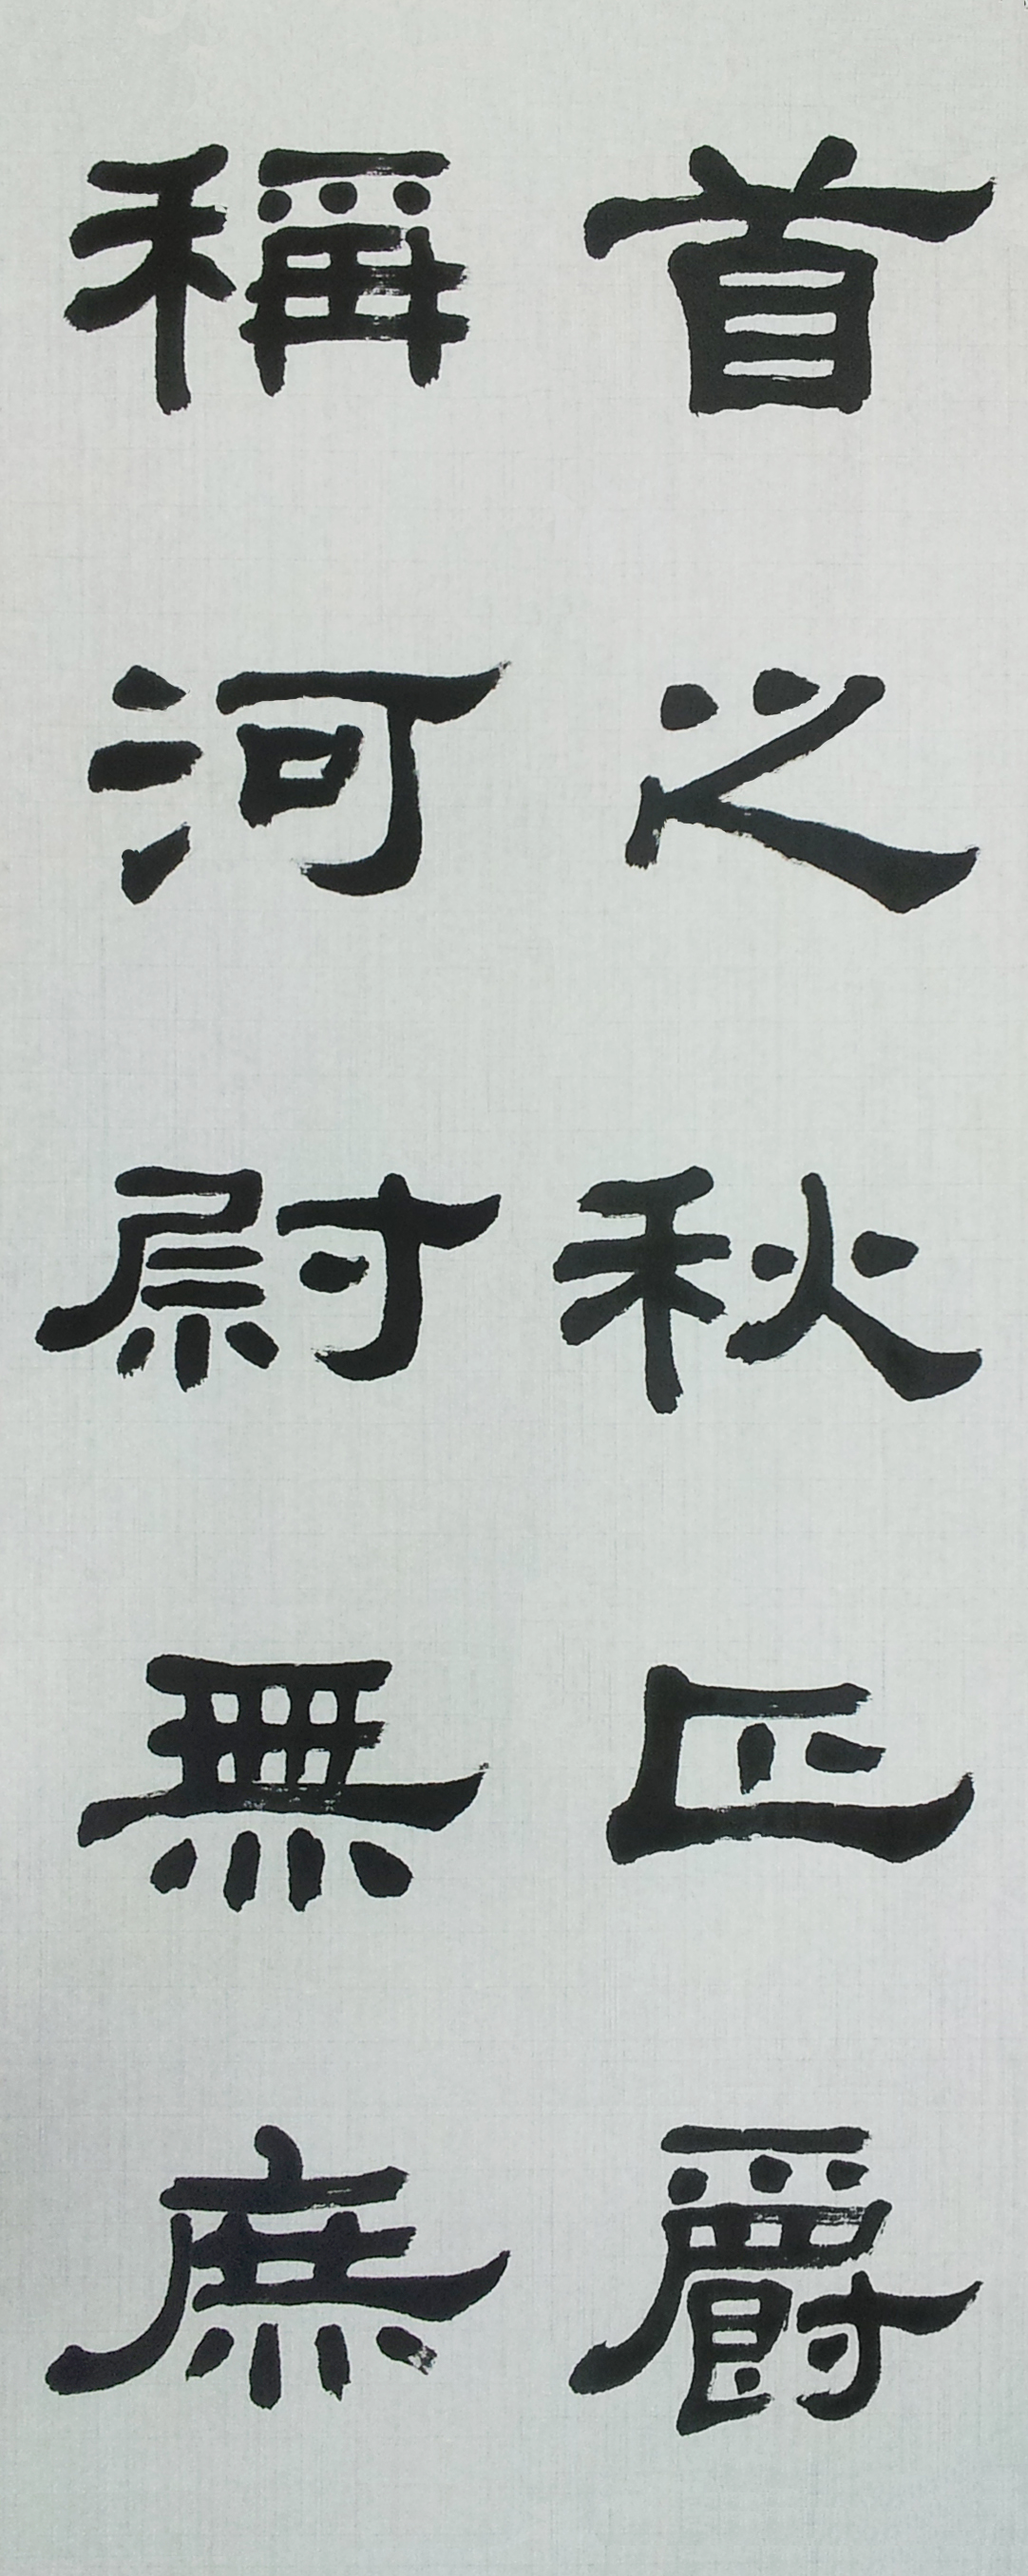 首之秋爵
稱河尉無庶